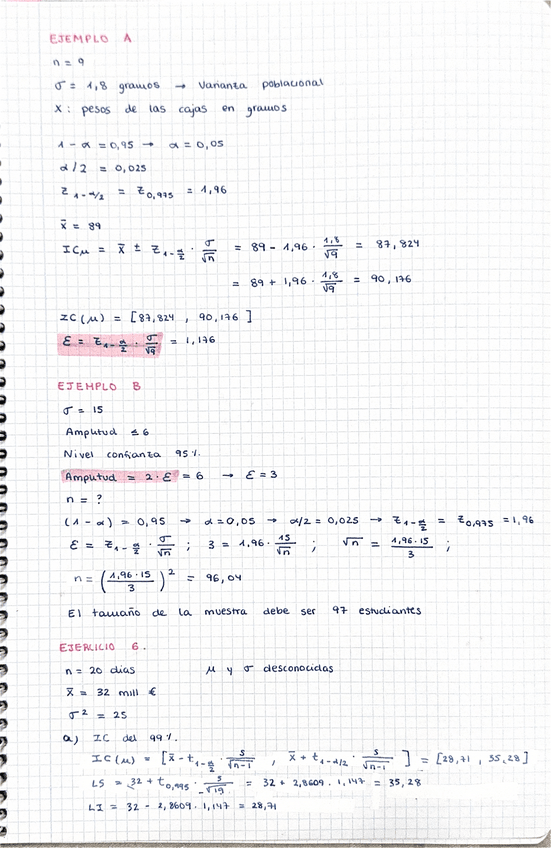 EJEMPLO A
n = 9
σ = 1,8 gramos → Varianza poblacional
X : pesos de las cajas en gramos
1 - α = 0,95 → α = 0,05
α/2 = 0,025
z 1-α/2 = z 0,975 = 1,96
x̄ = 89
ICμ = x̄ ± z 1-α/2 · σ/√n = 89 - 1,96 · 1,8/√9 = 87,824
= 89 + 1,96 · 1,8/√9 = 90,176
IC(μ) = [87,824 , 90,176]
ε = z 1-α/2 · σ/√9 = 1,176
EJEMPLO B
σ = 15
Amplitud ≤ 6
Nivel confianza 95%.
Amplitud = 2·ε = 6 → ε = 3
n = ?
(1 - α) = 0,95 → α = 0,05 → α/2 = 0,025 → z 1-α/2 = z 0,975 = 1,96
ε = z 1-α/2 · σ/√n ; 3 = 1,96 · 15/√n ; √n = 1,96·15/3 ;
n = (1,96·15/3)² = 96,04
El tamaño de la muestra debe ser 97 estudiantes
EJERCICIO 6.
n = 20 dias μ y σ desconocidas
x̄ = 32 mill €
σ² = 25
a) IC del 99%.
IC(μ) = [x̄ - t 1-α/2 · s/√n-1 , x̄ + t 1-α/2 · s/√n-1] = [28,71 , 35,28]
LS = 32 + t 0,995 · 5/√19 = 32 + 2,8609 · 1,147 = 35,28
LI = 32 - 2,8609 · 1,147 = 28,71